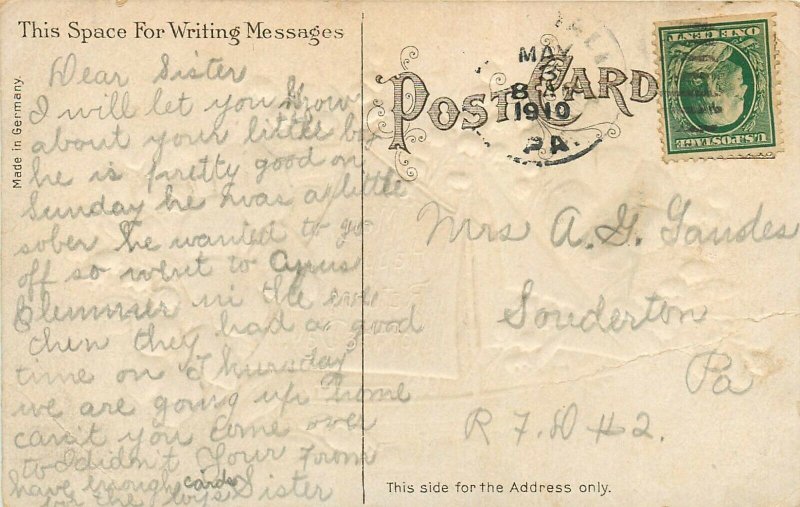 This Space For Writing Messages
Made in Germany.
Dear Sister
I will let you know
about your little boy
he is pretty good on
Sunday he was a little
sober he wanted to go
off so went to Cyrus
Clemmer in the eve
then they had a good
time on Thursday
we are going up home
can't you come over
to I didn't Your From
have enough cards Sister
for the boys
POST CARD
MAY
3
8 A
1910
PA.
ONE CENT
U.S. POSTAGE
Mrs A. G.
Souderton
Pa
R F. D #2.
This side for the Address only.